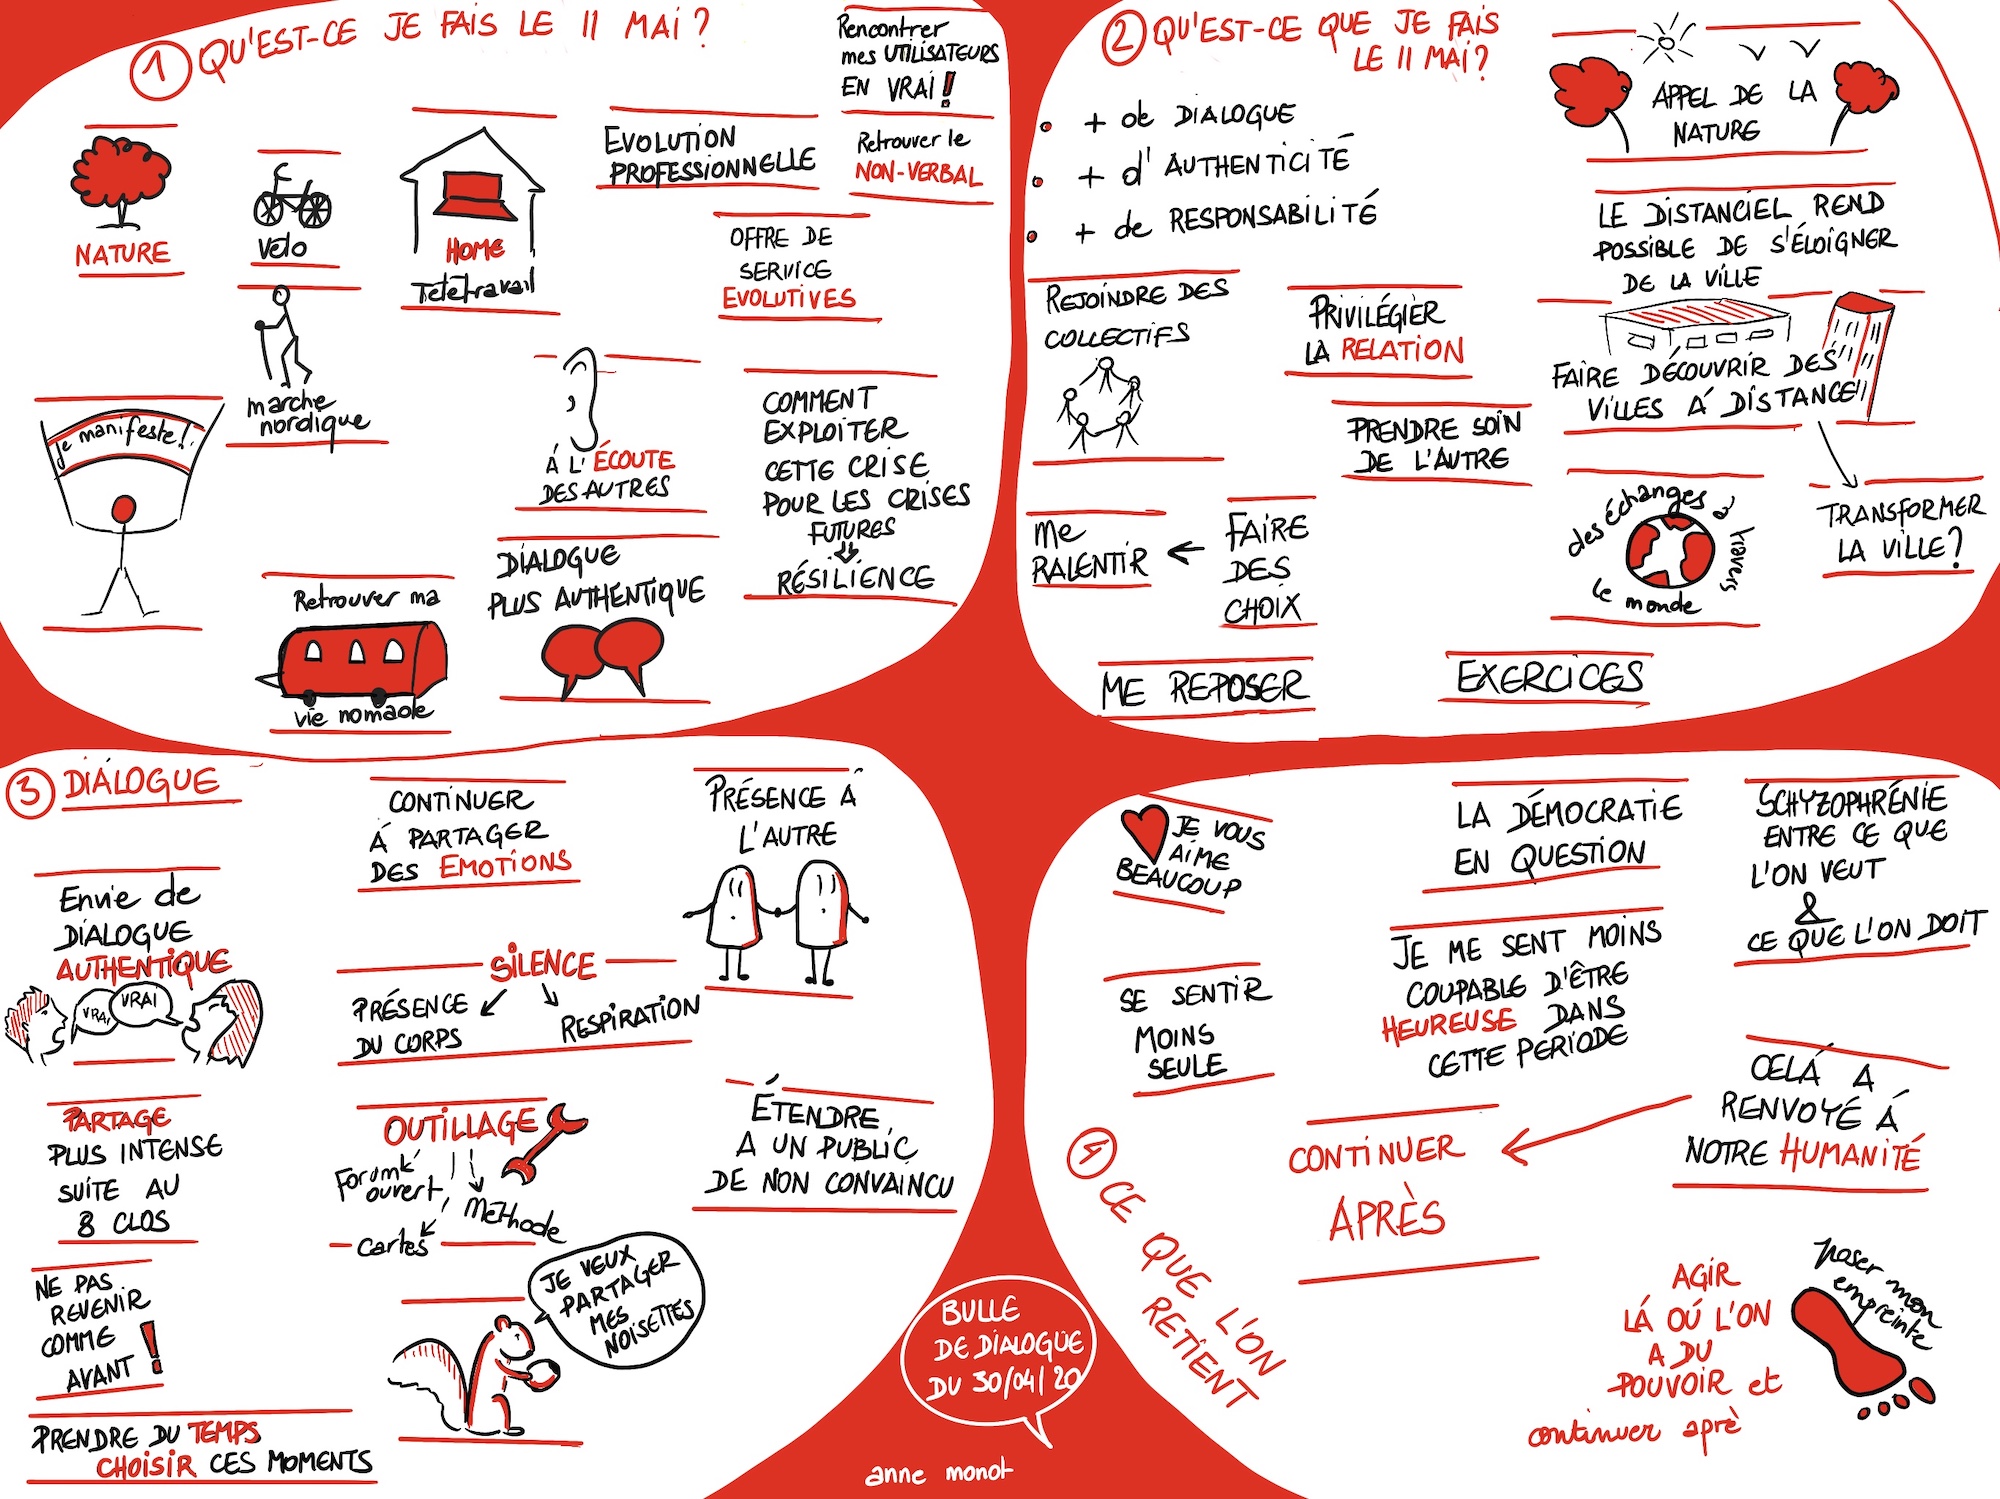 1 QU'EST-CE JE FAIS LE 11 MAI ?
Rencontrer
mes UTILISATEURS
EN VRAI !
NATURE
vélo
HOME
Télétravail
EVOLUTION
PROFESSIONNELLE
Retrouver le
NON-VERBAL
OFFRE DE
SERVICE
EVOLUTIVES
marche
nordique
je manifeste !
À L'ÉCOUTE
DES AUTRES
COMMENT
EXPLOITER
CETTE CRISE
POUR LES CRISES
FUTURES
RÉSILIENCE
Retrouver ma
vie nomade
DIALOGUE
PLUS AUTHENTIQUE
2 QU'EST-CE QUE JE FAIS
LE 11 MAI ?
+ de DIALOGUE
+ d'AUTHENTICITÉ
+ de RESPONSABILITÉ
APPEL DE LA
NATURE
LE DISTANCIEL REND
POSSIBLE DE S'ÉLOIGNER
DE LA VILLE
REJOINDRE DES
COLLECTIFS
PRIVILÉGIER
LA RELATION
FAIRE DÉCOUVRIR DES
VILLES À DISTANCE
PRENDRE SOIN
DE L'AUTRE
ME
RALENTIR
FAIRE
DES
CHOIX
des échanges à travers
le monde
TRANSFORMER
LA VILLE ?
ME REPOSER
EXERCICES
3 DIALOGUE
Envie de
DIALOGUE
AUTHENTIQUE
VRAI
VRAI
CONTINUER
À PARTAGER
DES EMOTIONS
PRÉSENCE À
L'AUTRE
SILENCE
PRÉSENCE
DU CORPS
RESPIRATION
PARTAGE
PLUS INTENSE
SUITE AU
8 CLOS
OUTILLAGE
Forumk
ouvert
Méthode
Cartes
ÉTENDRE
A UN PUBLIC
DE NON CONVAINCU
NE PAS
REVENIR
COMME
AVANT !
JE VEUX
PARTAGER
MES
NOISETTES
PRENDRE DU TEMPS
CHOISIR CES MOMENTS
4 CE QUE L'ON
RETIENT
JE VOUS
AIME
BEAUCOUP
LA DÉMOCRATIE
EN QUESTION
SCHYZOPHRÉNIE
ENTRE CE QUE
L'ON VEUT
&
CE QUE L'ON DOIT
SE SENTIR
MOINS
SEULE
JE ME SENT MOINS
COUPABLE D'ÊTRE
HEUREUSE DANS
CETTE PERIODE
CELÀ A
RENVOYÉ À
NOTRE HUMANITÉ
CONTINUER
APRÈS
AGIR
LÀ OÚ L'ON
A DU
POUVOIR et
continuer aprè
poser mon
empreinte
BULLE
DE DIALOGUE
DU 30/04/20
anne monot